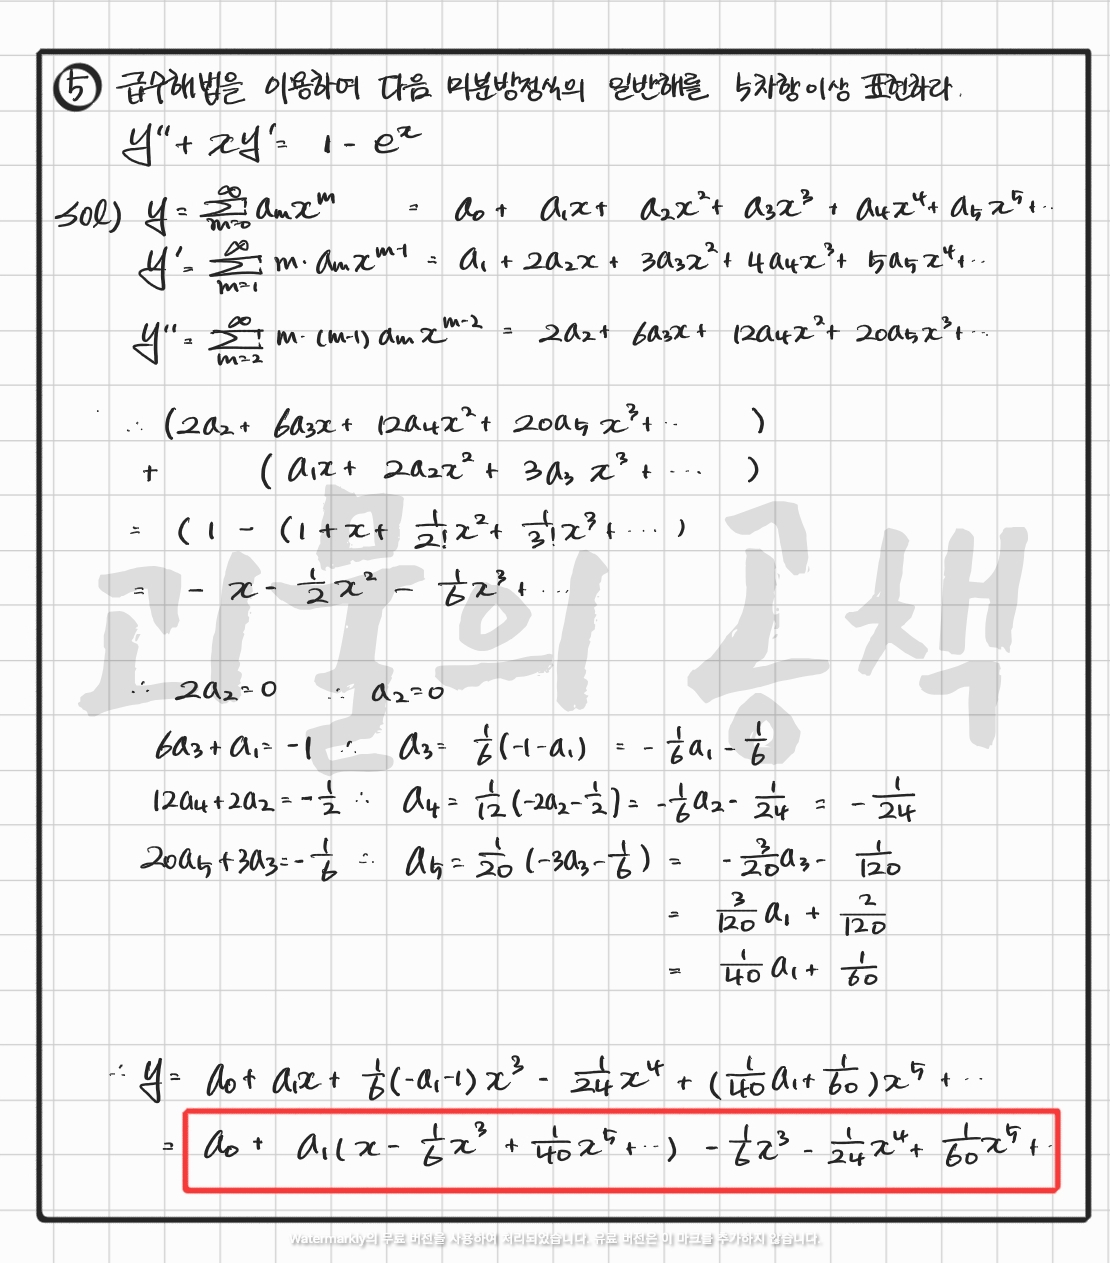 ⑤ 급수해법을 이용하여 다음 미분방정식의 일반해를 5차항이상 표현하라.
y'' + xy' = 1 - e^x
sol) y = ∑_{m=0}^{∞} a_m x^m = a_0 + a_1x + a_2x^2 + a_3x^3 + a_4x^4 + a_5x^5 + ...
y' = ∑_{m=1}^{∞} m · a_m x^{m-1} = a_1 + 2a_2x + 3a_3x^2 + 4a_4x^3 + 5a_5x^4 + ...
y'' = ∑_{m=2}^{∞} m · (m-1) a_m x^{m-2} = 2a_2 + 6a_3x + 12a_4x^2 + 20a_5x^3 + ...
∴ (2a_2 + 6a_3x + 12a_4x^2 + 20a_5x^3 + ... )
+ (a_1x + 2a_2x^2 + 3a_3x^3 + ... )
= (1 - (1 + x + 1/2! x^2 + 1/3! x^3 + ... )
= - x - 1/2 x^2 - 1/6 x^3 + ...
괴물의 공책
∴ 2a_2 = 0 ∴ a_2 = 0
6a_3 + a_1 = -1 ∴ a_3 = 1/6 (-1-a_1) = - 1/6 a_1 - 1/6
12a_4 + 2a_2 = - 1/2 ∴ a_4 = 1/12 (-2a_2 - 1/2) = - 1/6 a_2 - 1/24 = - 1/24
20a_5 + 3a_3 = - 1/6 ∴ a_5 = 1/20 (-3a_3 - 1/6) = - 3/20 a_3 - 1/120
= 3/120 a_1 + 2/120
= 1/40 a_1 + 1/60
∴ y = a_0 + a_1x + 1/6 (-a_1-1) x^3 - 1/24 x^4 + (1/40 a_1 + 1/60) x^5 + ...
= a_0 + a_1 (x - 1/6 x^3 + 1/40 x^5 + ...) - 1/6 x^3 - 1/24 x^4 + 1/60 x^5 + ..
Watermarkly의 무료 버전을 사용하여 처리되었습니다. 유료 버전은 이 마크를 추가하지 않습니다.